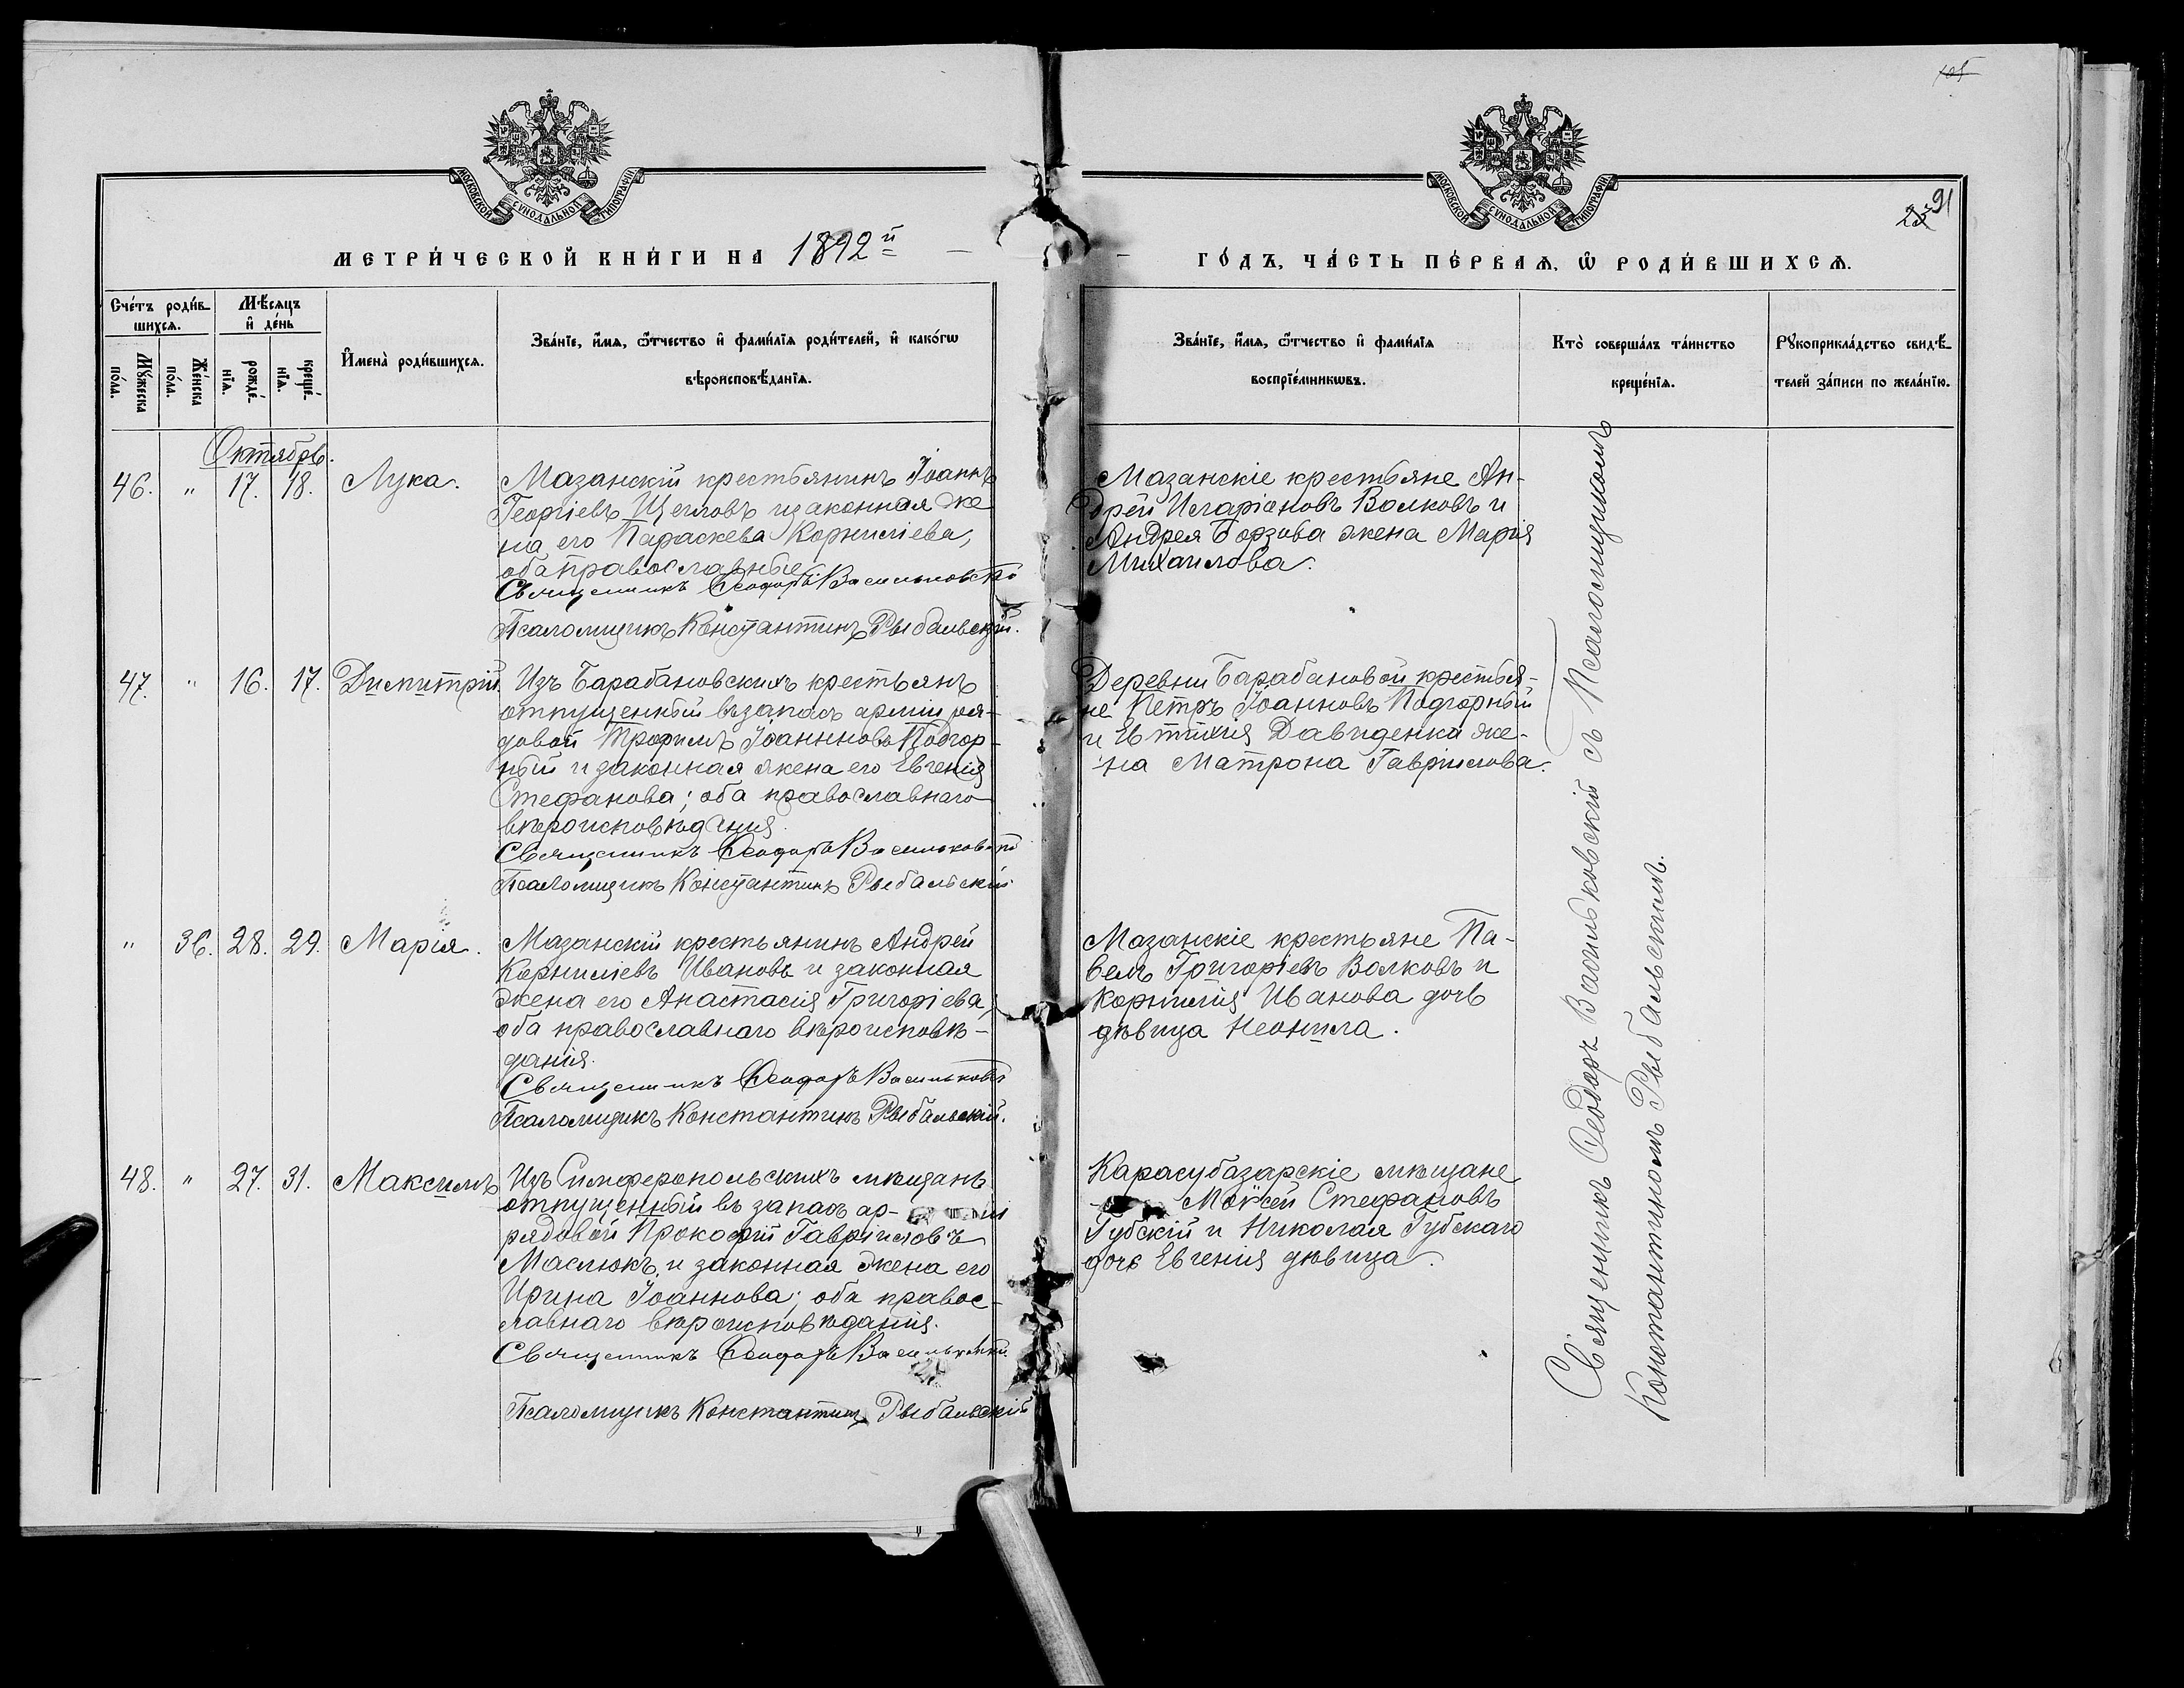 105
МОСКОВСКОЙ СѴНОДАЛЬНОЙ ТИПОГРАФІИ
МОСКОВСКОЙ СѴНОДАЛЬНОЙ ТИПОГРАФІИ
23 91
МЕТРИ́ЧЕСКОЙ КНИ́ГИ НА 1892й
ГО́ДЪ, ЧА́СТЬ ПЕ́РВАѦ, Ѽ РОДИ́ВШИХСѦ.
Сче́тъ роди́в-
шихсѧ.
Мѣ́сѧцъ
и҆ де́нь
Мꙋ́жеска
по́ла.
Же́нска
по́ла.
рожде́-
нїѧ.
креще́-
нїѧ.
И҆мена̀ роди́вшихсѧ.
Зва́нїе, и҆́мѧ, ѻ҆́тчество и҆ фами́лїѧ роди́телей, и҆ како́гѡ
вѣроисповѣ́данїѧ.
Зва́нїе, и҆́мѧ, ѻ҆́тчество и҆ фами́лїѧ
воспрїе́мникѡвъ.
Кто̀ соверша́лъ та́инство
креще́нїѧ.
Рꙋкоприкла́дство свидѣ́-
телей за́писи по жела́нїю.
Октябрь.
46. " 17. 18. Лука. Мазанскій крестьянинъ Іоаннъ
Георгіевъ Щегловъ и законная же
на его Параскева Корниліева,
оба православные
Священникъ Ѳеодоръ Васильковскій
Псаломщикъ Константинъ Рыбальскій.
Мазанскіе крестьяне Ан-
дрей Иларіоновъ Волковъ и
Андрея Борзова жена Марія
Михаилова.
47. " 16. 17. Димитрій. Изъ Барабановскихъ крестьянъ
отпущенный въ запасъ арміи ря-
довой Трофимъ Іоанновъ Подгор-
ный и законная жена его Евгенія
Стефанова; оба православнаго
вѣроисповѣданія.
Священникъ Ѳеодоръ Васильковскій
Псаломщикъ Константинъ Рыбальскій
Деревни Барабановой крестья-
не Петръ Іоанновъ Подгорный
и Евтихія Давиденка же-
на Матрона Гавриилова.
" 36. 28. 29. Марія. Мазанскій крестьянинъ Андрей
Корниліевъ Ивановъ и законная
жена его Анастасія Григоріева,
оба православнаго вѣроисповѣ-
данія.
Священникъ Ѳеодоръ Васильковскій
Псаломщикъ Константинъ Рыбальскій.
Мазанскіе крестьяне Па-
велъ Григоріевъ Волковъ и
Корнилія Иванова дочь
дѣвица Неонила.
48. " 27. 31. Максимъ Изъ Симферопольскихъ мѣщанъ
отпущенный въ запасъ ар-
рядовой Прокофій Гаврииловъ
Маслюкъ, и законная жена его
Ирина Іоаннова; оба правос-
лавнаго вѣроисповѣданія.
Священникъ Ѳеодоръ Васильковскій
Псаломщикъ Константинъ Рыбальскій
Карасубазарскіе мѣщане
Моѵсей Стефановъ
Губскій и Николая Губскаго
дочь Евгенія дѣвица.
Священникъ Ѳеодоръ Васильковскій съ Псаломщикомъ
Константиномъ Рыбальскимъ.